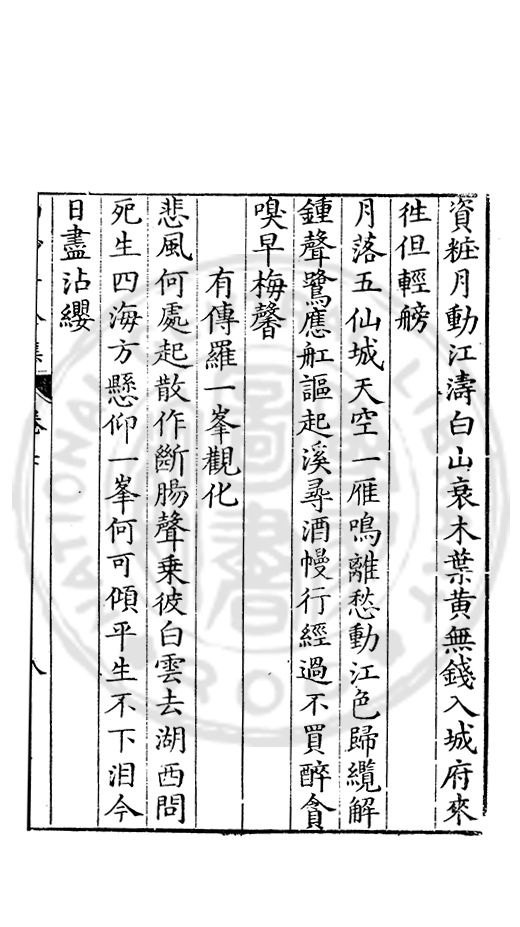 資粧月動江濤白山衰木葉黃無錢入城府來
徃但輕艕
月落五仙城天空一雁鳴離愁動江色歸纜解
鍾聲鷺應舡謳起溪尋酒幔行經過不買醉貪
嗅早梅馨
有傳羅一峯觀化
悲風何處起散作斷腸聲乗彼白雲去湖西問
死生四海方懸仰一峯何可傾平生不下泪今
日盡沾纓